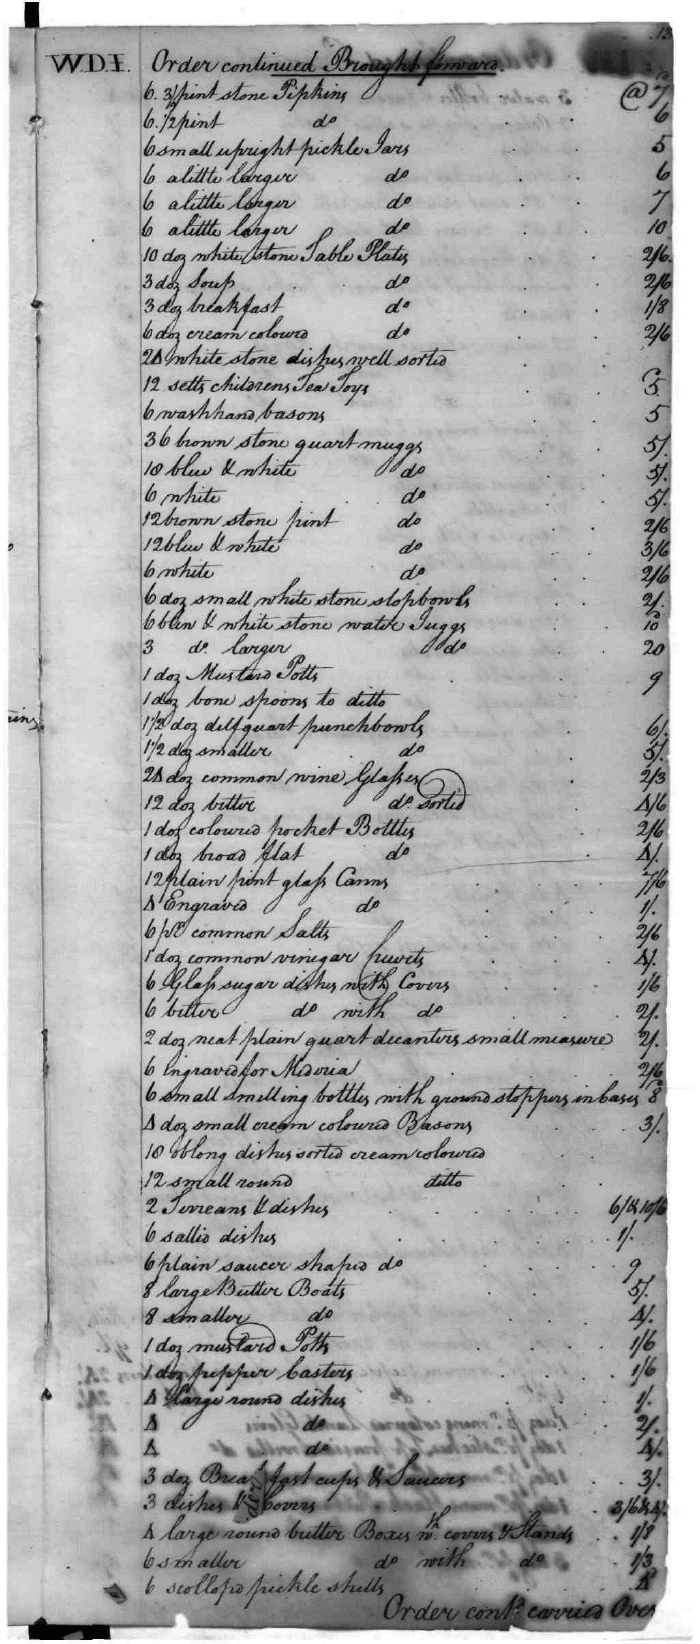 13
W.D.I. Order continued Brought forward.
6. 3/pint stone Pipkins @ 7
6. 1/2 pint do 6
6 small upright pickle Jars 5
6 a little larger do 6
6 a little larger do 7
6 a little larger do 10
10 doz white stone Table Plates 2/6
3 doz Soup do 2/6
3 doz breakfast do 1/8
6 doz cream coloured do 2/6
24 white stone dishes well sorted
12 setts childrens Tea Toys 3
6 washhand basons 5
36 brown stone quart muggs 5/.
18 blue & white do 5/.
6 white do 5/.
12 brown stone pint do 2/6
12 blue & white do 3/6
6 white do 2/6
6 doz small white stone slopbowls 2/.
6 blew & white stone water Juggs 10
3 do. larger do 20
1 doz Mustard Potts 9
1 doz bone spoons to ditto
1 1/2 doz delf quart punchbowls 6/.
1 1/2 doz smaller do 5/.
24 doz common wine Glasses 2/3
12 doz better do. sorted 4/6
1 doz coloured pocket Bottles 2/6
1 doz broad flat do 4/.
12 plain pint glass Canns 7/6
4 Engraved do 1/.
6 pr. common Salts 2/6
1 doz common vinegar Cruets 4/.
6 Glass sugar dishes with Covers 1/6
6 better do with do 2/.
2 doz neat plain quart decanters small measure 2/.
6 Engraved for Mederia 2/6
6 small smelling bottles with ground stoppers in Cases 8
4 doz small cream coloured Basons 3/.
18 oblong dishes sorted cream coloured
12 small round ditto
2 Terreans & dishes 6/ & 10/6
6 sallid dishes 1/.
6 plain saucer shaped do 9
8 large Butter Boats 5/.
8 smaller do 4/.
1 doz mustard Potts 1/6
1 doz pepper Casters 1/6
4 large round dishes 1/.
4 do 2/.
4 do 4/.
3 doz Breakfast cups & Saucers 3/.
3 dishes & Covers 3/6 & 4/.
4 large round butter Boxes wth. covers & Stands 1/8
6 smaller do with do 1/3
6 scollopd pickle shells 4
Order contd. carried Over